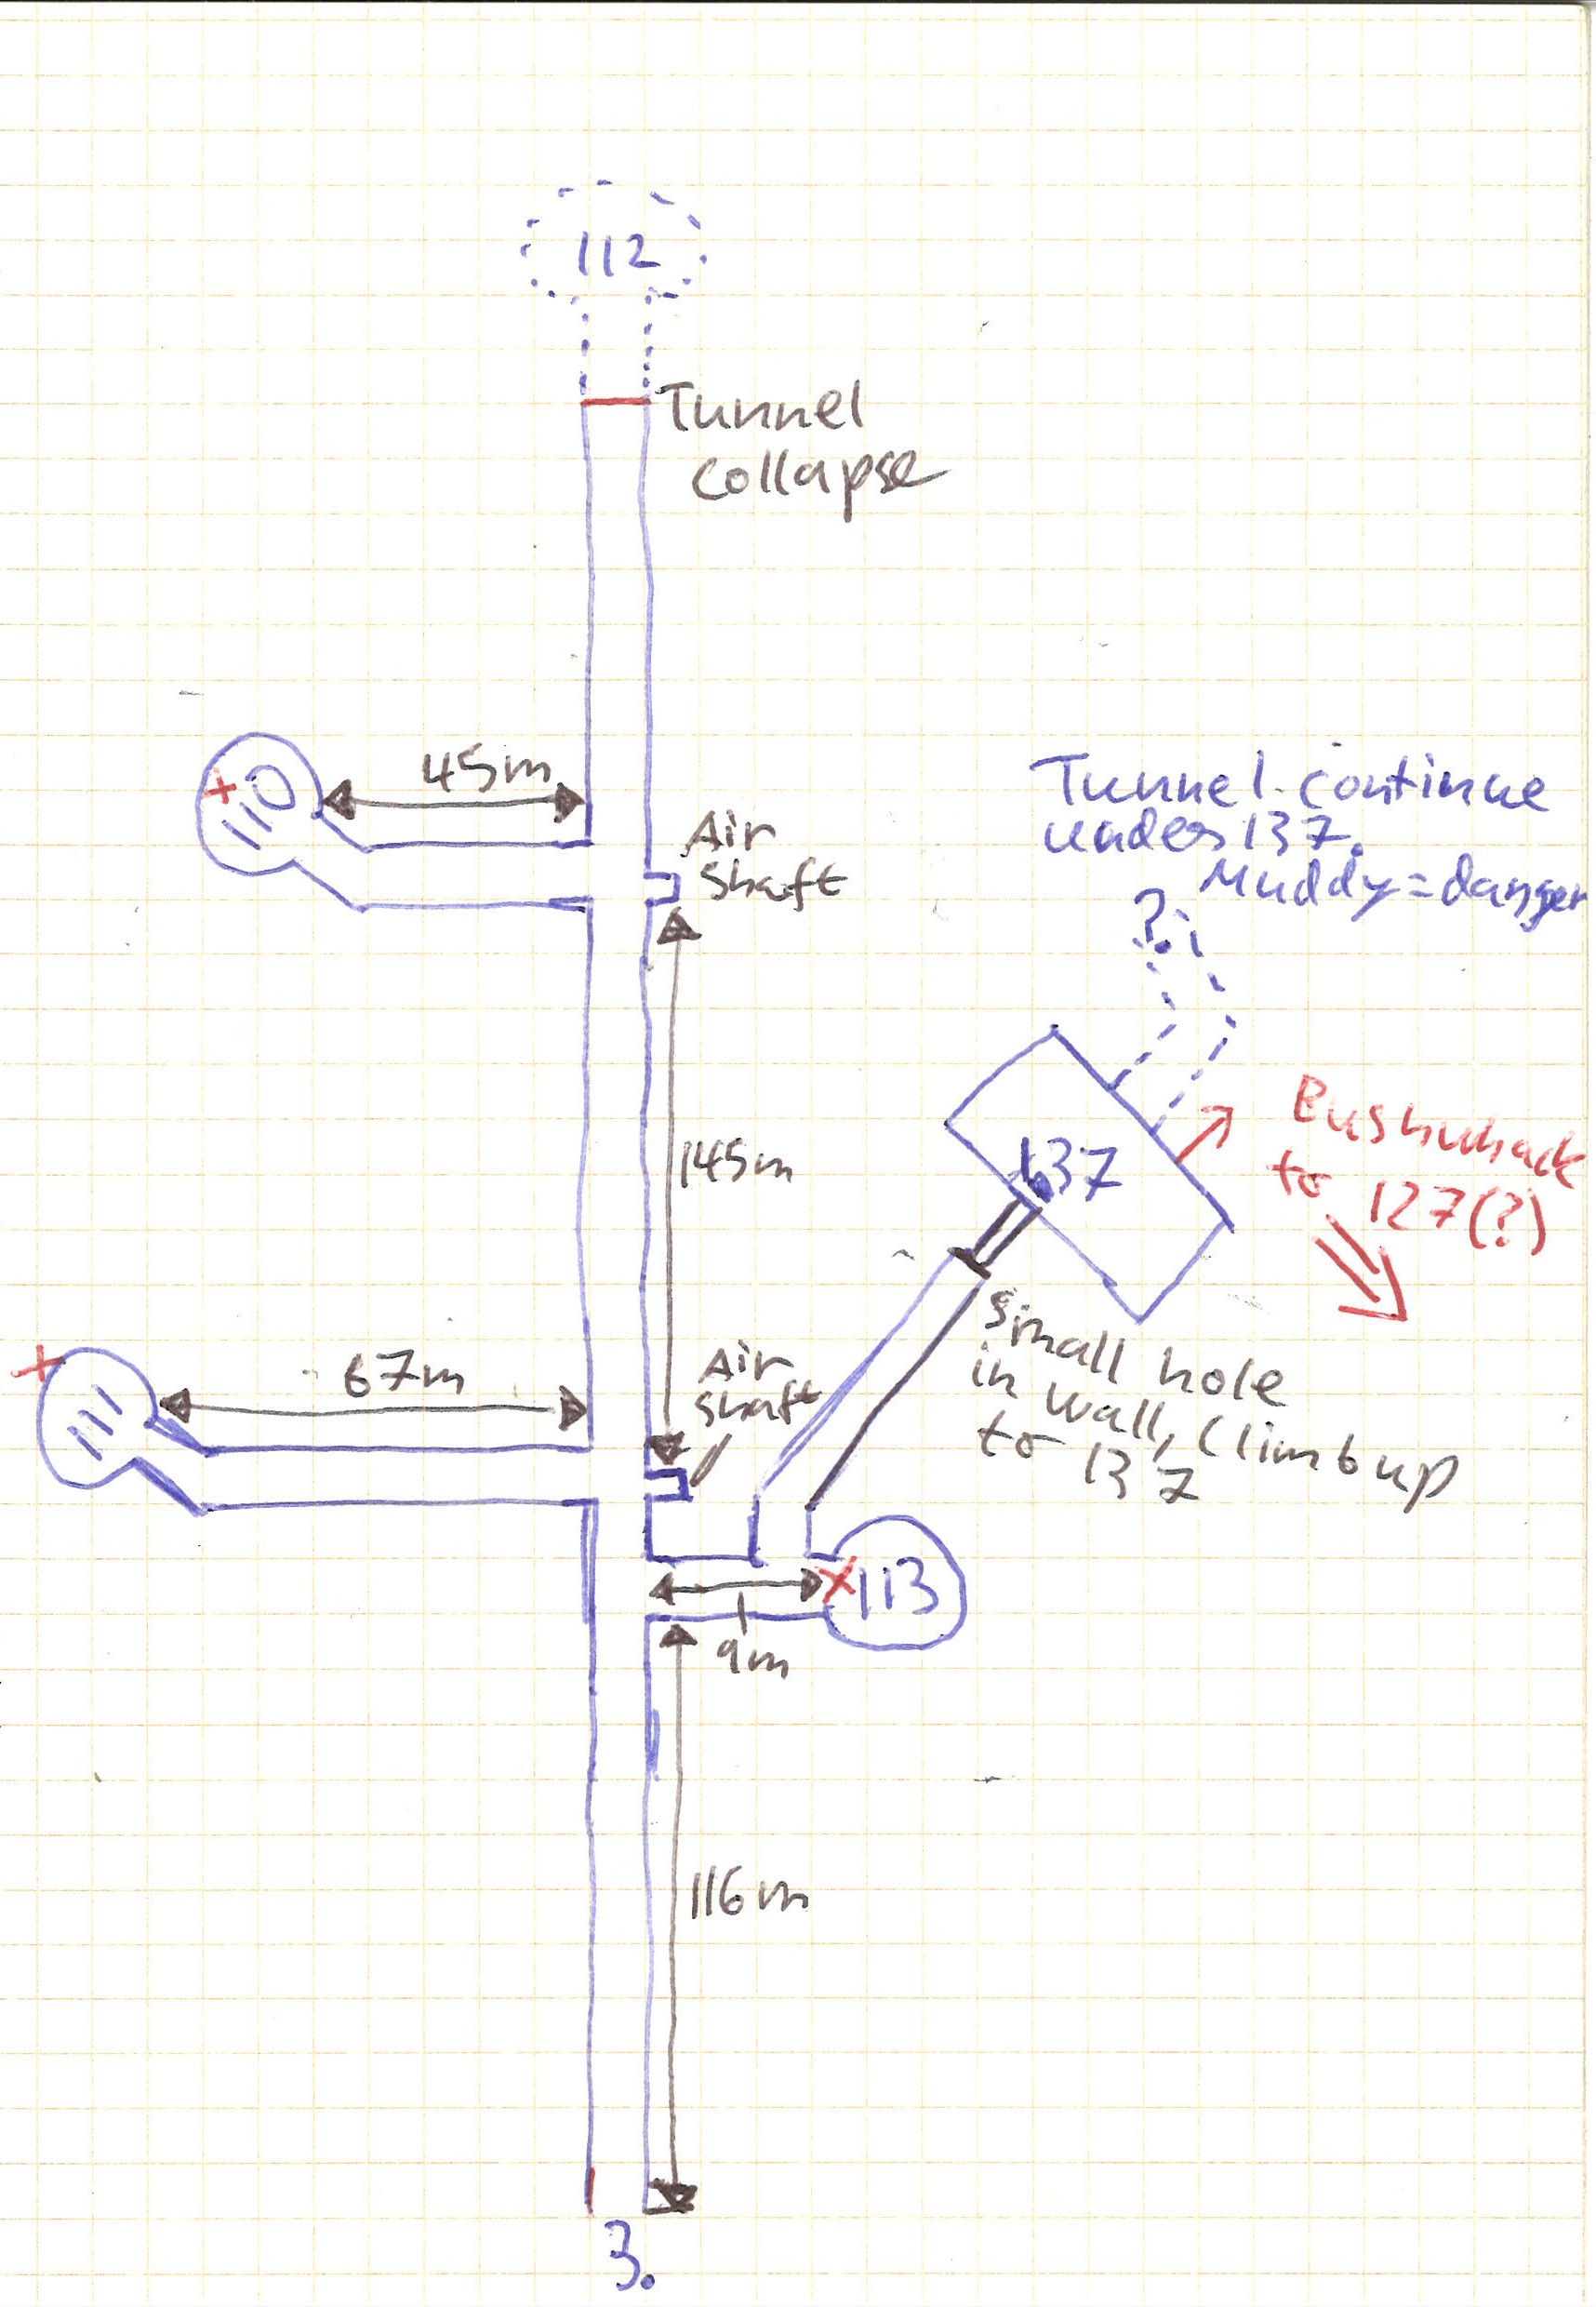 112
Tunnel
collapse
45m
110
Air
shaft
Tunnel continue
under 137.
Muddy=danger
?
145m
137
Bushwhack
to 127(?)
Small hole
in wall, Climb up
to 137
67m
111
Air
shaft
113
9m
116m
3.